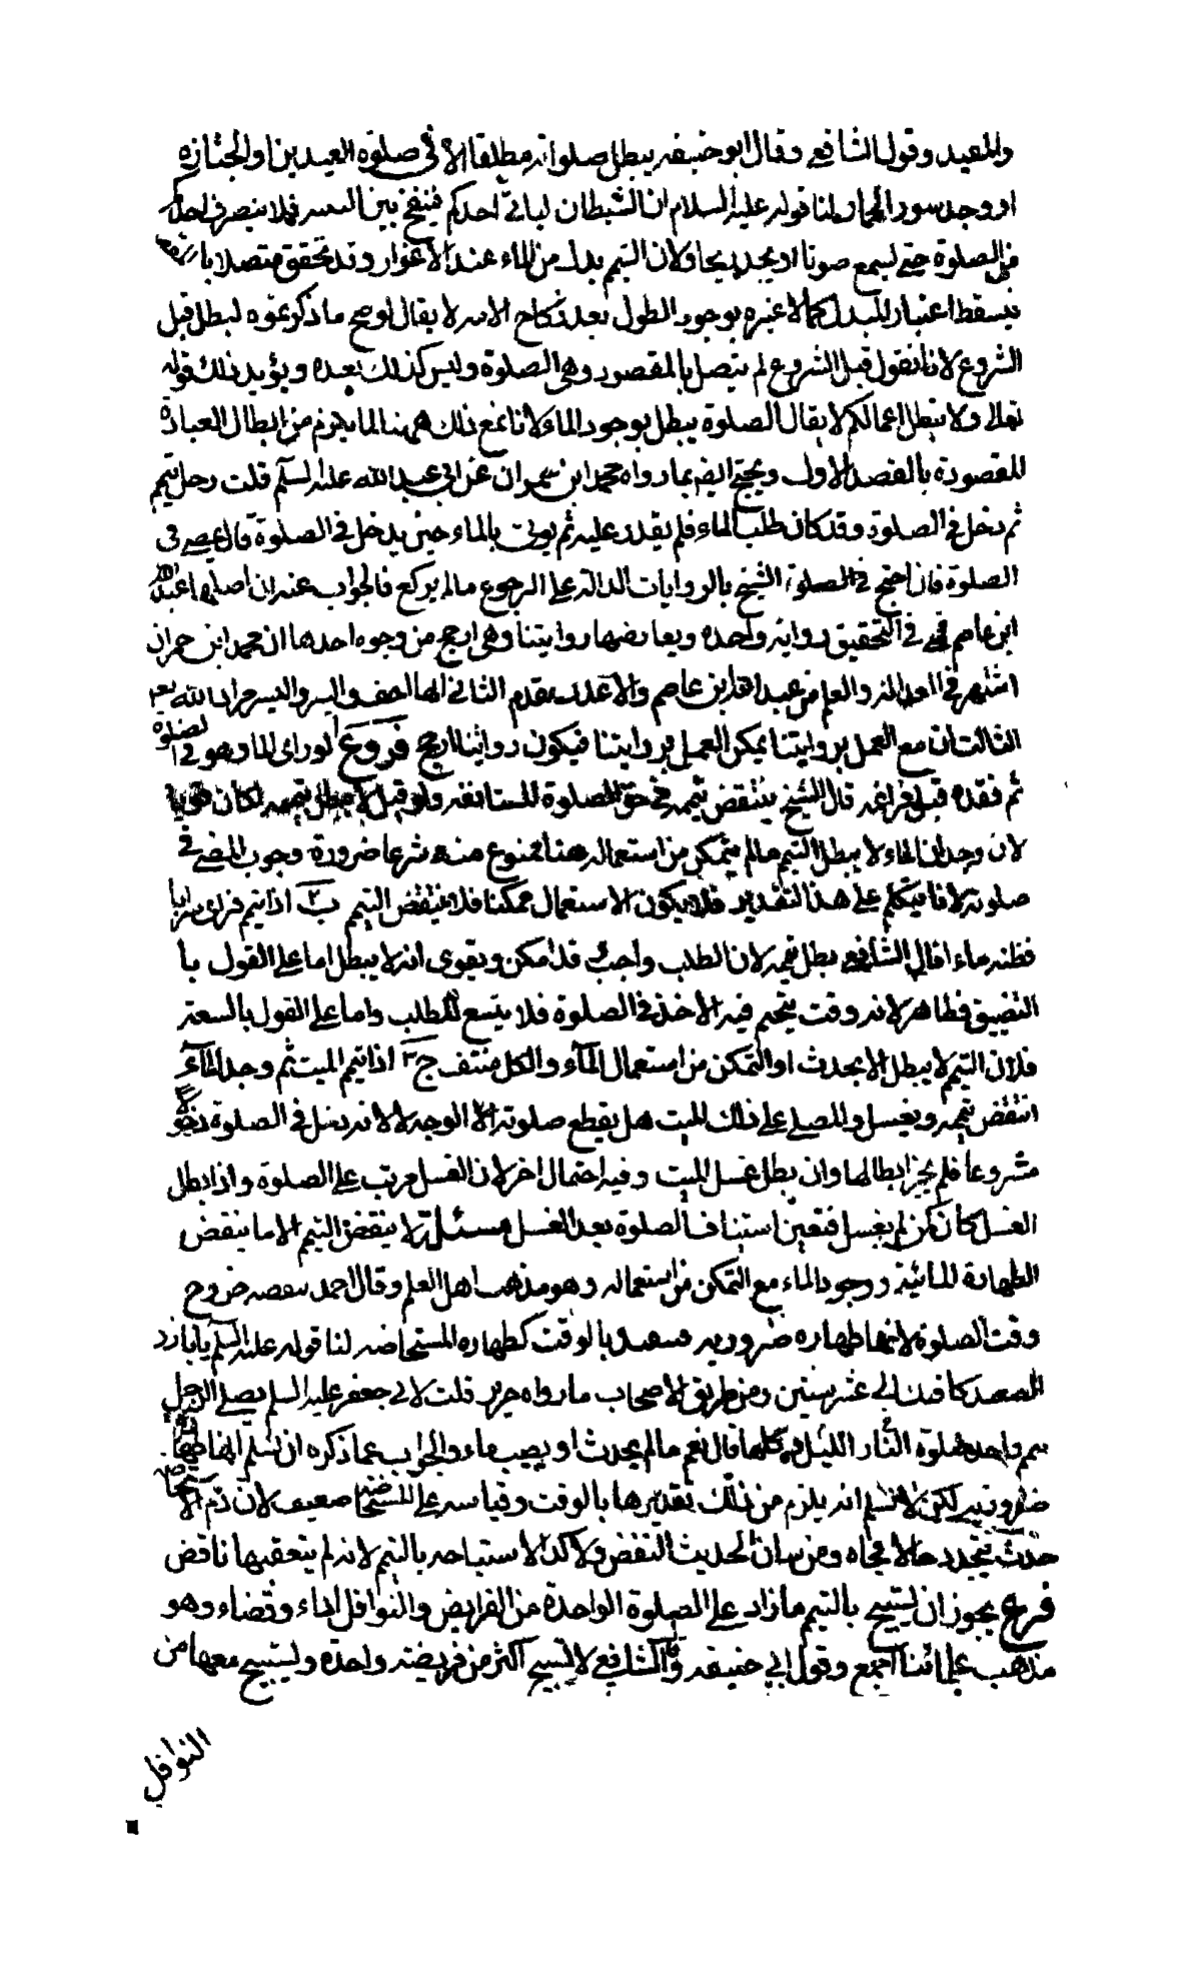 والمفيد وقول الشافعي وقال ابو حنيفه يبطل صلواته مطلقا الا في صلوة العيدين او الجنازه
او وجد سور الحمار لنا قوله عليه السلام ان الشيطان لياتي احدكم فينفخ بين اليتيه فلا ينصرف احدكم
من الصلوة حتى يسمع صوتا او يجد ريحا ولان التيمم بدل من الماء عند الاعواز وقد تحقق متصلا بالمقصود
فيسقط اعتبار المبدل كما لا عبره بوجود الطول بعد نكاح الامه لا يقال لو صح ما ذكرتموه لبطل قبل
الشروع لانا نقول قبل الشروع لم يتصل بالمقصود وهي الصلوة وليس كذلك بعده ويؤيد ذلك قوله
تعالى ولا تبطلوا اعمالكم لا يقال الصلوة يبطل بوجود الماء لانا نمنع ذلك ههنا لما يلزم من ابطال العبادة
المقصودة بالقصد الاول ويحتج ايضا بما رواه محمد ابن حمران عن ابي عبد الله عليه السلم قلت رجل تيمم
ثم دخل في الصلوة وقد كان طلب الماء فلم يقدر عليه ثم يوتى بالماء حين يدخل في الصلوة قال يمضي في
الصلوة فان احتج الشيخ بالروايات الدالة على الرجوع ما لم يركع فالجواب عنه ان اصلها عبد الله
ابن عاصم فهي في التحقيق رواية واحده ويعارضها روايتنا وهي ارجح من وجوه احدها ان محمد ابن حمران
اشهر في العدالة والعلم من عبد الله بن عاصم والاعدل مقدم الثاني انها اخف واليسر واليسر مراد الله تعم
الثالث ان مع العمل بروايتنا يمكن العمل بروايته فيكون روايتنا ارجح فروع ا لو راى الماء وهو في الصلوة
ثم فقده قبل فراغه قال الشيخ ينتقض تيممه في حق الصلوة المستانفه ولو قيل لا يبطل تيممه لكان قويا
لان وجدان الماء لا يبطل التيمم ما لم يتمكن من استعماله وهنا ممنوع منه شرعا ضرورة وجوب المضي في
صلوته لانا نتكلم على هذا التقدير فلا يكون الاستعمال ممكنا فلا ينتقض التيمم ب اذا تيمم فراى سرابا
فظنه ماء قال الشافعي بطل تيممه لان الطلب واجب وقد امكن ويقوى انه لا يبطل اما على القول با
التضييق فظاهر لانه وقت يتحتم فيه الاخذ في الصلوة فلا يتسع للطلب واما على القول بالسعه
فلان التيمم لا يبطل الا بحدث او التمكن من استعمال الماء والكل منتف ج اذا تيمم الميت ثم وجد الماء
انتقض تيممه ويغسل والمصلي على ذلك الميت هل يقطع صلوته الوجه لا لانه دخل في الصلوة دخولا
مشروعا فلم يجز ابطالها وان بطل غسل الميت وفيه احتمال اخر لان الغسل مرتب على الصلوة واذا بطل
الغسل كان كمن لم يغسل فتعين استيناف الصلوة بعد الغسل مسئلة لا ينقض التيمم الا ما ينقض
الطهارة المائية ووجود الماء مع التمكن من استعماله وهو مذهب اهل العلم وقال احمد ينقضه خروج
وقت الصلوة لانها طهاره ضروريه فتتقيد بالوقت كطهاره المستحاضه لنا قوله عليه السلم يا باذر
الصعيد كافيك الى عشر سنين ومن طريق الاصحاب ما رواه حريز قلت لابي جعفر عليه السلم يصلي الرجل
بتيمم واحد صلوة الليل والنهار كلها قال نعم ما لم يحدث او يصيب ماء والجواب عما ذكره ان نسلم انها طهاره
ضروريه لكن لا نسلم انه يلزم من ذلك تقديرها بالوقت وقياسه على المستحاضه ضعيف لان دم الاستحاضه
حدث يتجدد حالا فحالا ومن شان الحديث النقض ولا كذلك الاستباحه بالتيمم لانه لم يتعقبها ناقض
فرع يجوز ان يستبيح بالتيمم ما زاد على الصلوة الواحدة من الفرايض والنوافل اداء وقضاء وهو
مذهب علمائنا اجمع وقول ابي حنيفه وقال الشافعي لا يستبيح اكثر من فريضه واحدة ويستبيح معها من
النوافل